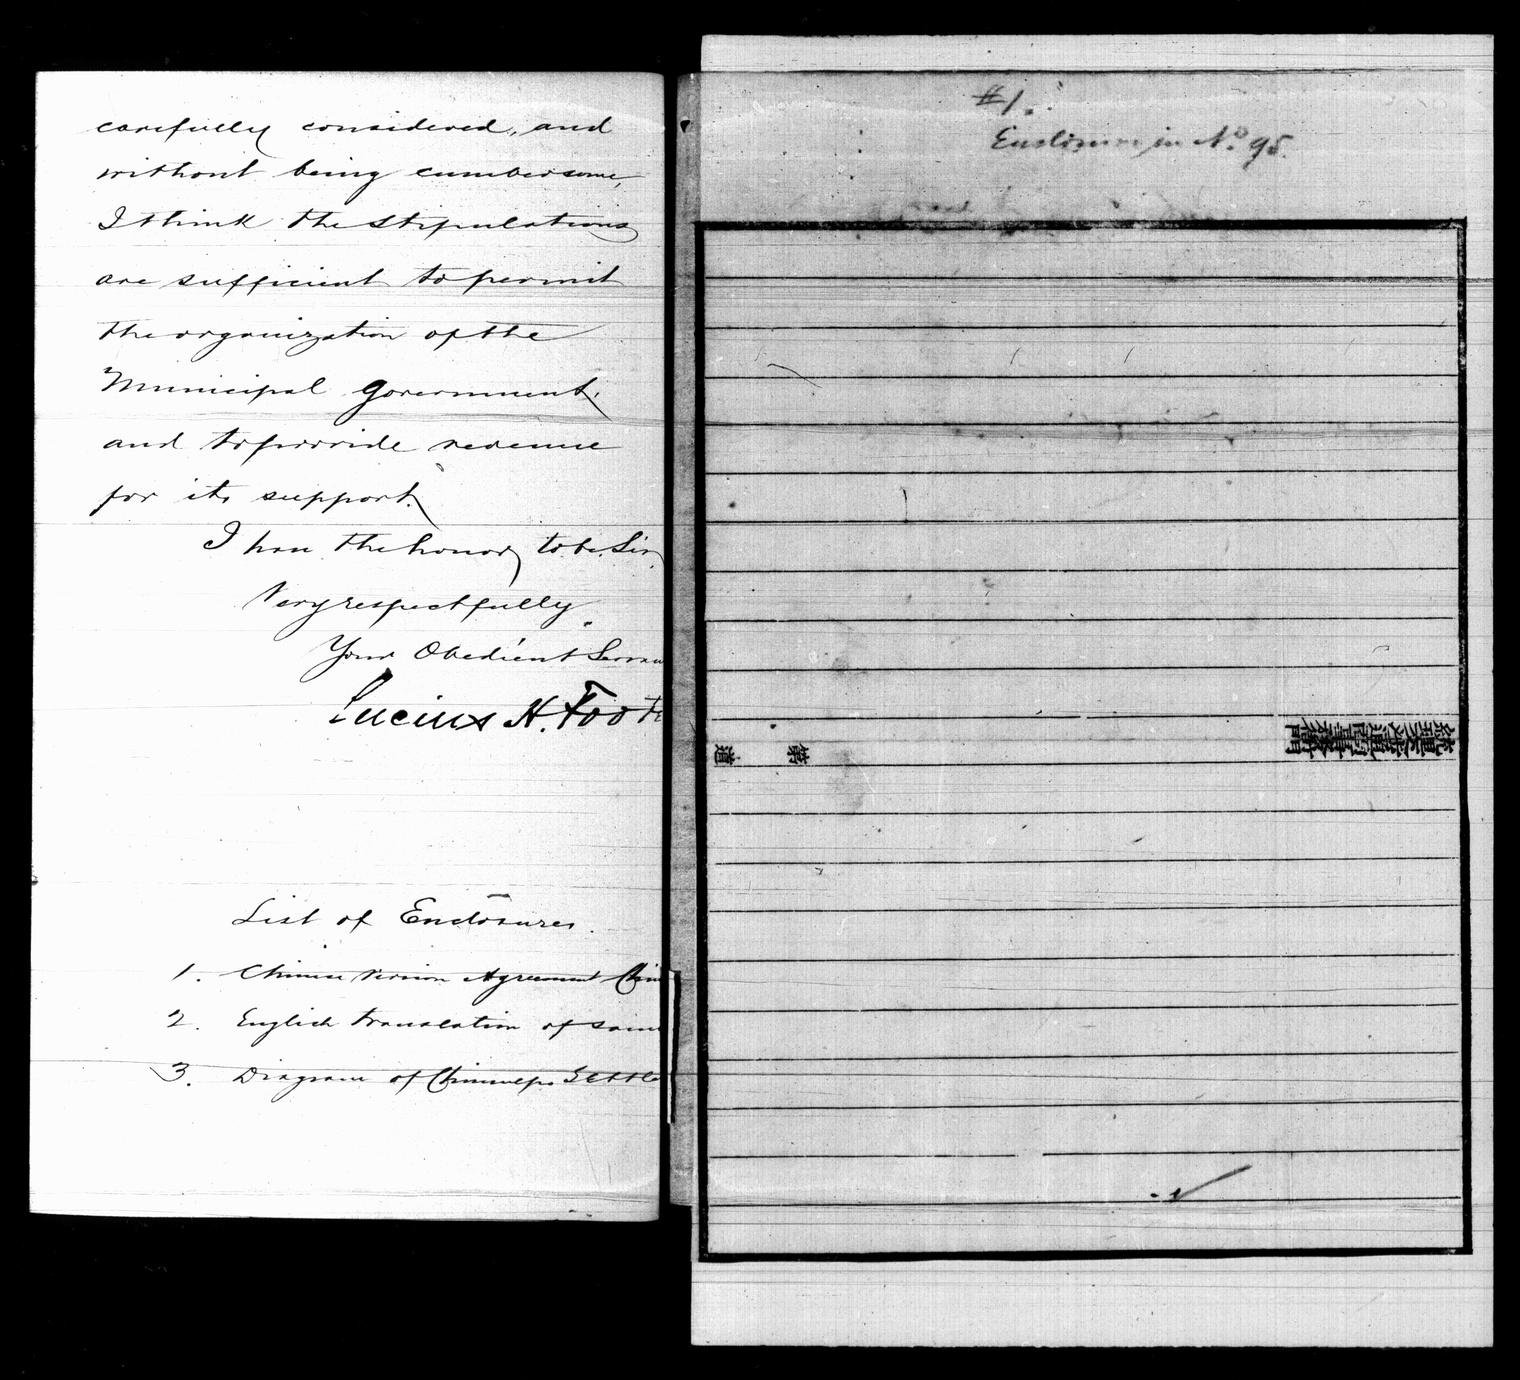 carefully considered, and
without being cumbersome,
I think the stipulations
are sufficient to permit
the organization of the
Municipal Government,
and to provide revenue
for its support.
I have the honor to be Sir,
Very respectfully
Your Obedient
Lucius H. Foote
List of Enclosures.
1. Chinese Version Agreement
2. English translation of
3. Diagram of Chemulpo
#1.
Enclosure in No. 95.
統理交涉通商事務衙門
第
道